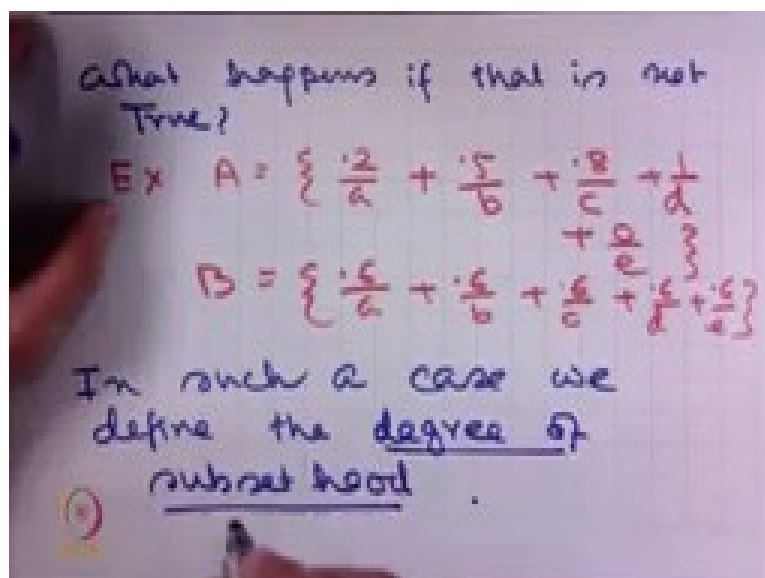 What happens if that is not
True?
Ex A = { .2/a + .5/b + .8/c + 1/d
+ 0/e }
B = { .6/a + .6/b + .6/c + .6/d + .6/e }
In such a case we
define the degree of
subset hood .